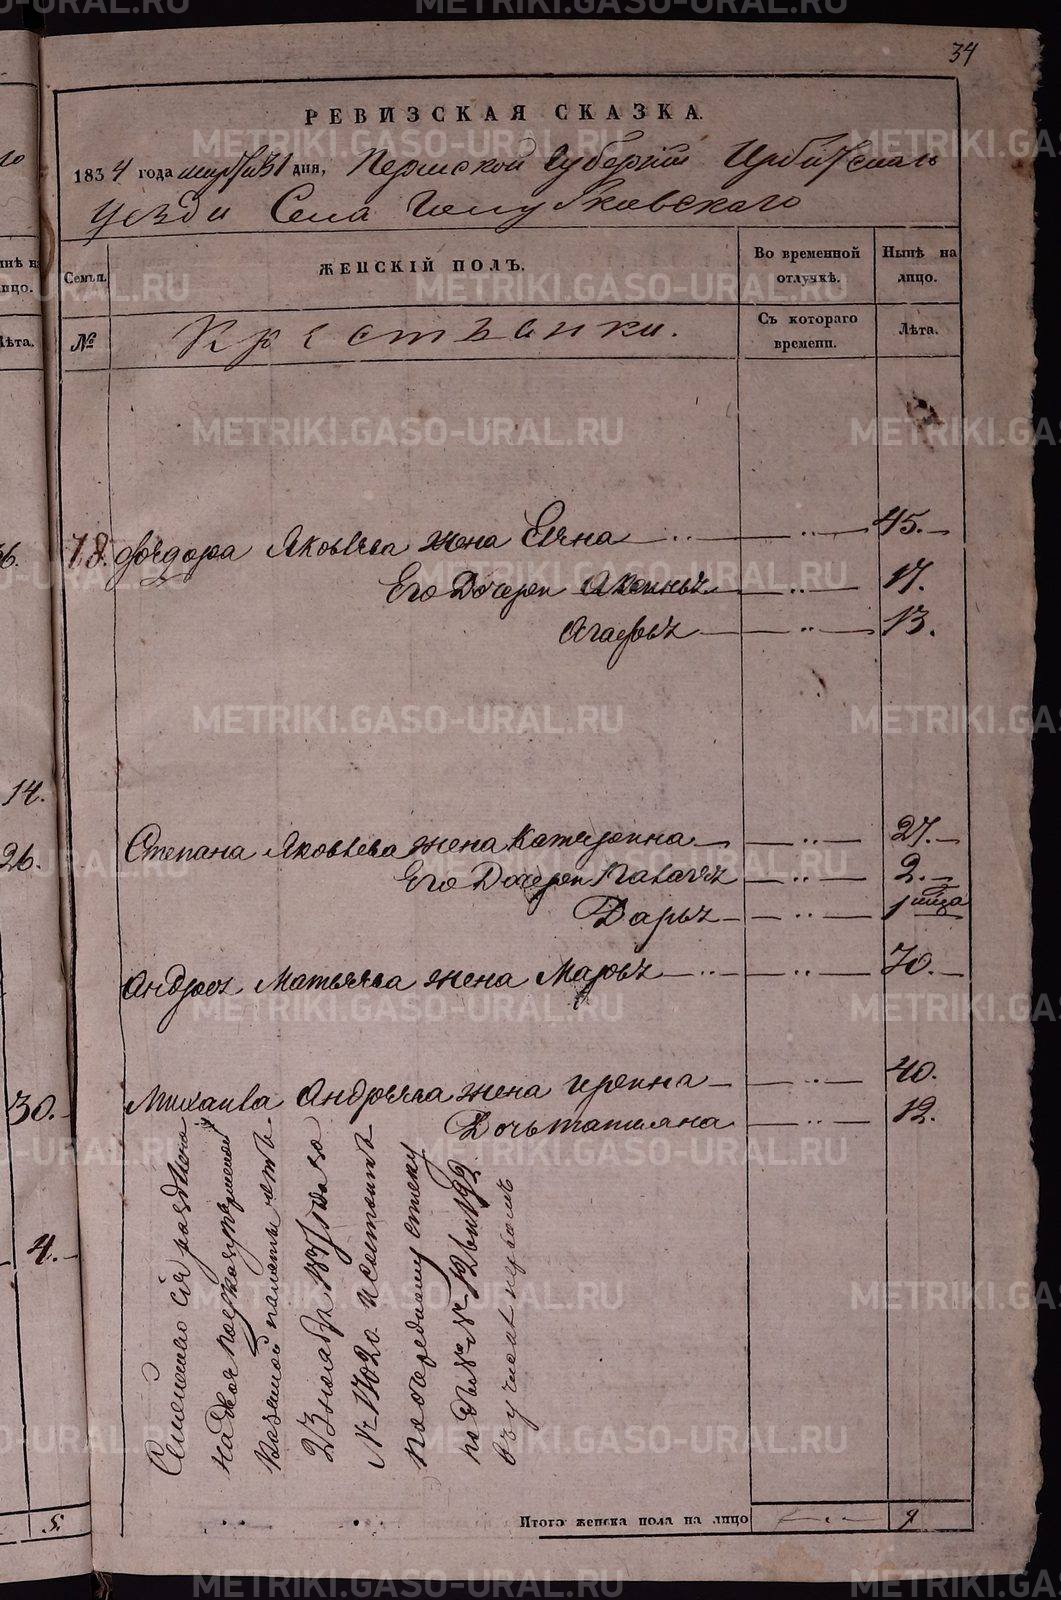 34
РЕВИЗСКАЯ СКАЗКА.
1834 года марта 31 дня, Пермской губернии Ирбитскаго
уезда Села Голубковскаго
Семьи.
ЖЕНСКІЙ ПОЛЪ.
Во временной отлучкѣ.
Нынѣ на лицо.
№
Крестьянки.
Съ котораго времени.
Лѣта.
78. Феодора Яковлева жена Елена 45.
Его Дочери 17.
Агафья 13.
Степана Яковлева жена Катерина 27.
Его Дочери 2.
Дарья 1
Андрея Матвеева жена Марфа 70.
Михаила Андреева жена Ирина 40.
Дочь татиана 12.
Семейство сіе разделено
на двое по
казенной палаты отъ
23 ноября года
№ 17020 и состоитъ
по очередному списку
подъ №№ 12 и 192
Итого женска пола на лицо 9
лицо.
Лѣта.
14.
26.
30.
4.
5.
METRIKI.GASO-URAL.RU